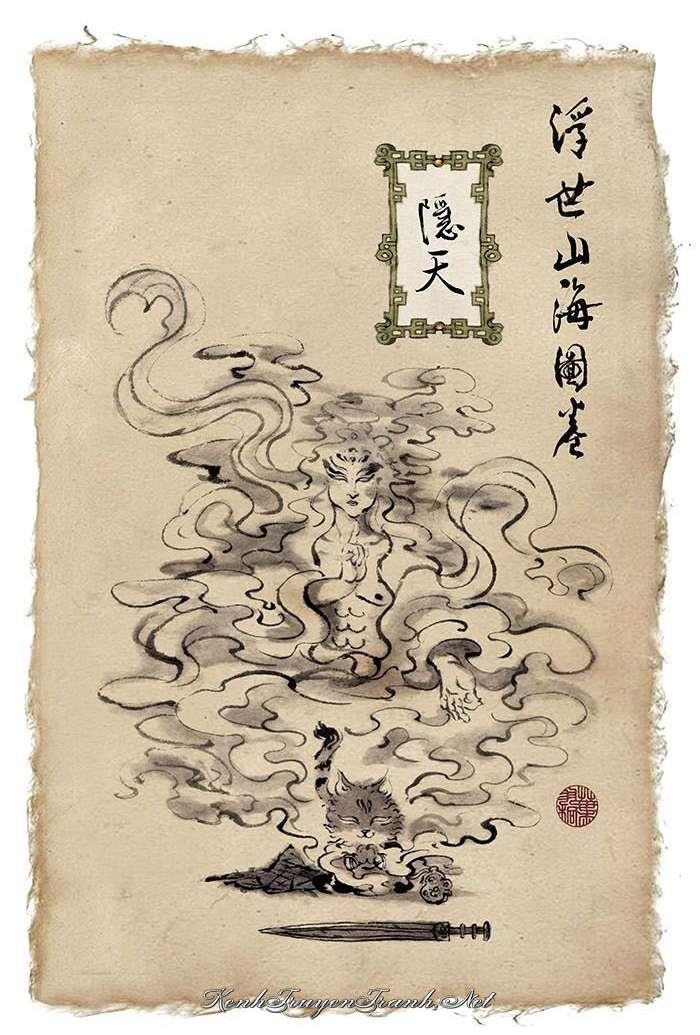 浮世山海圖卷
隱天
KenhTruyenTranh.Net